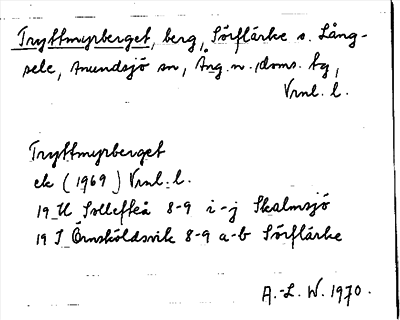 Tryttmyrberget, berg, Sörflärke s. Lång-
sele, Anundsjö sn, Ång. n. doms. tg,
Vrnl. l.
Tryttmyrberget
ek (1969) Vrnl. l.
19 H Sollefteå 8-9 i-j Skalmsjö
19 I Örnsköldsvik 8-9 a-b Sörflärke
A.-L. W. 1970.